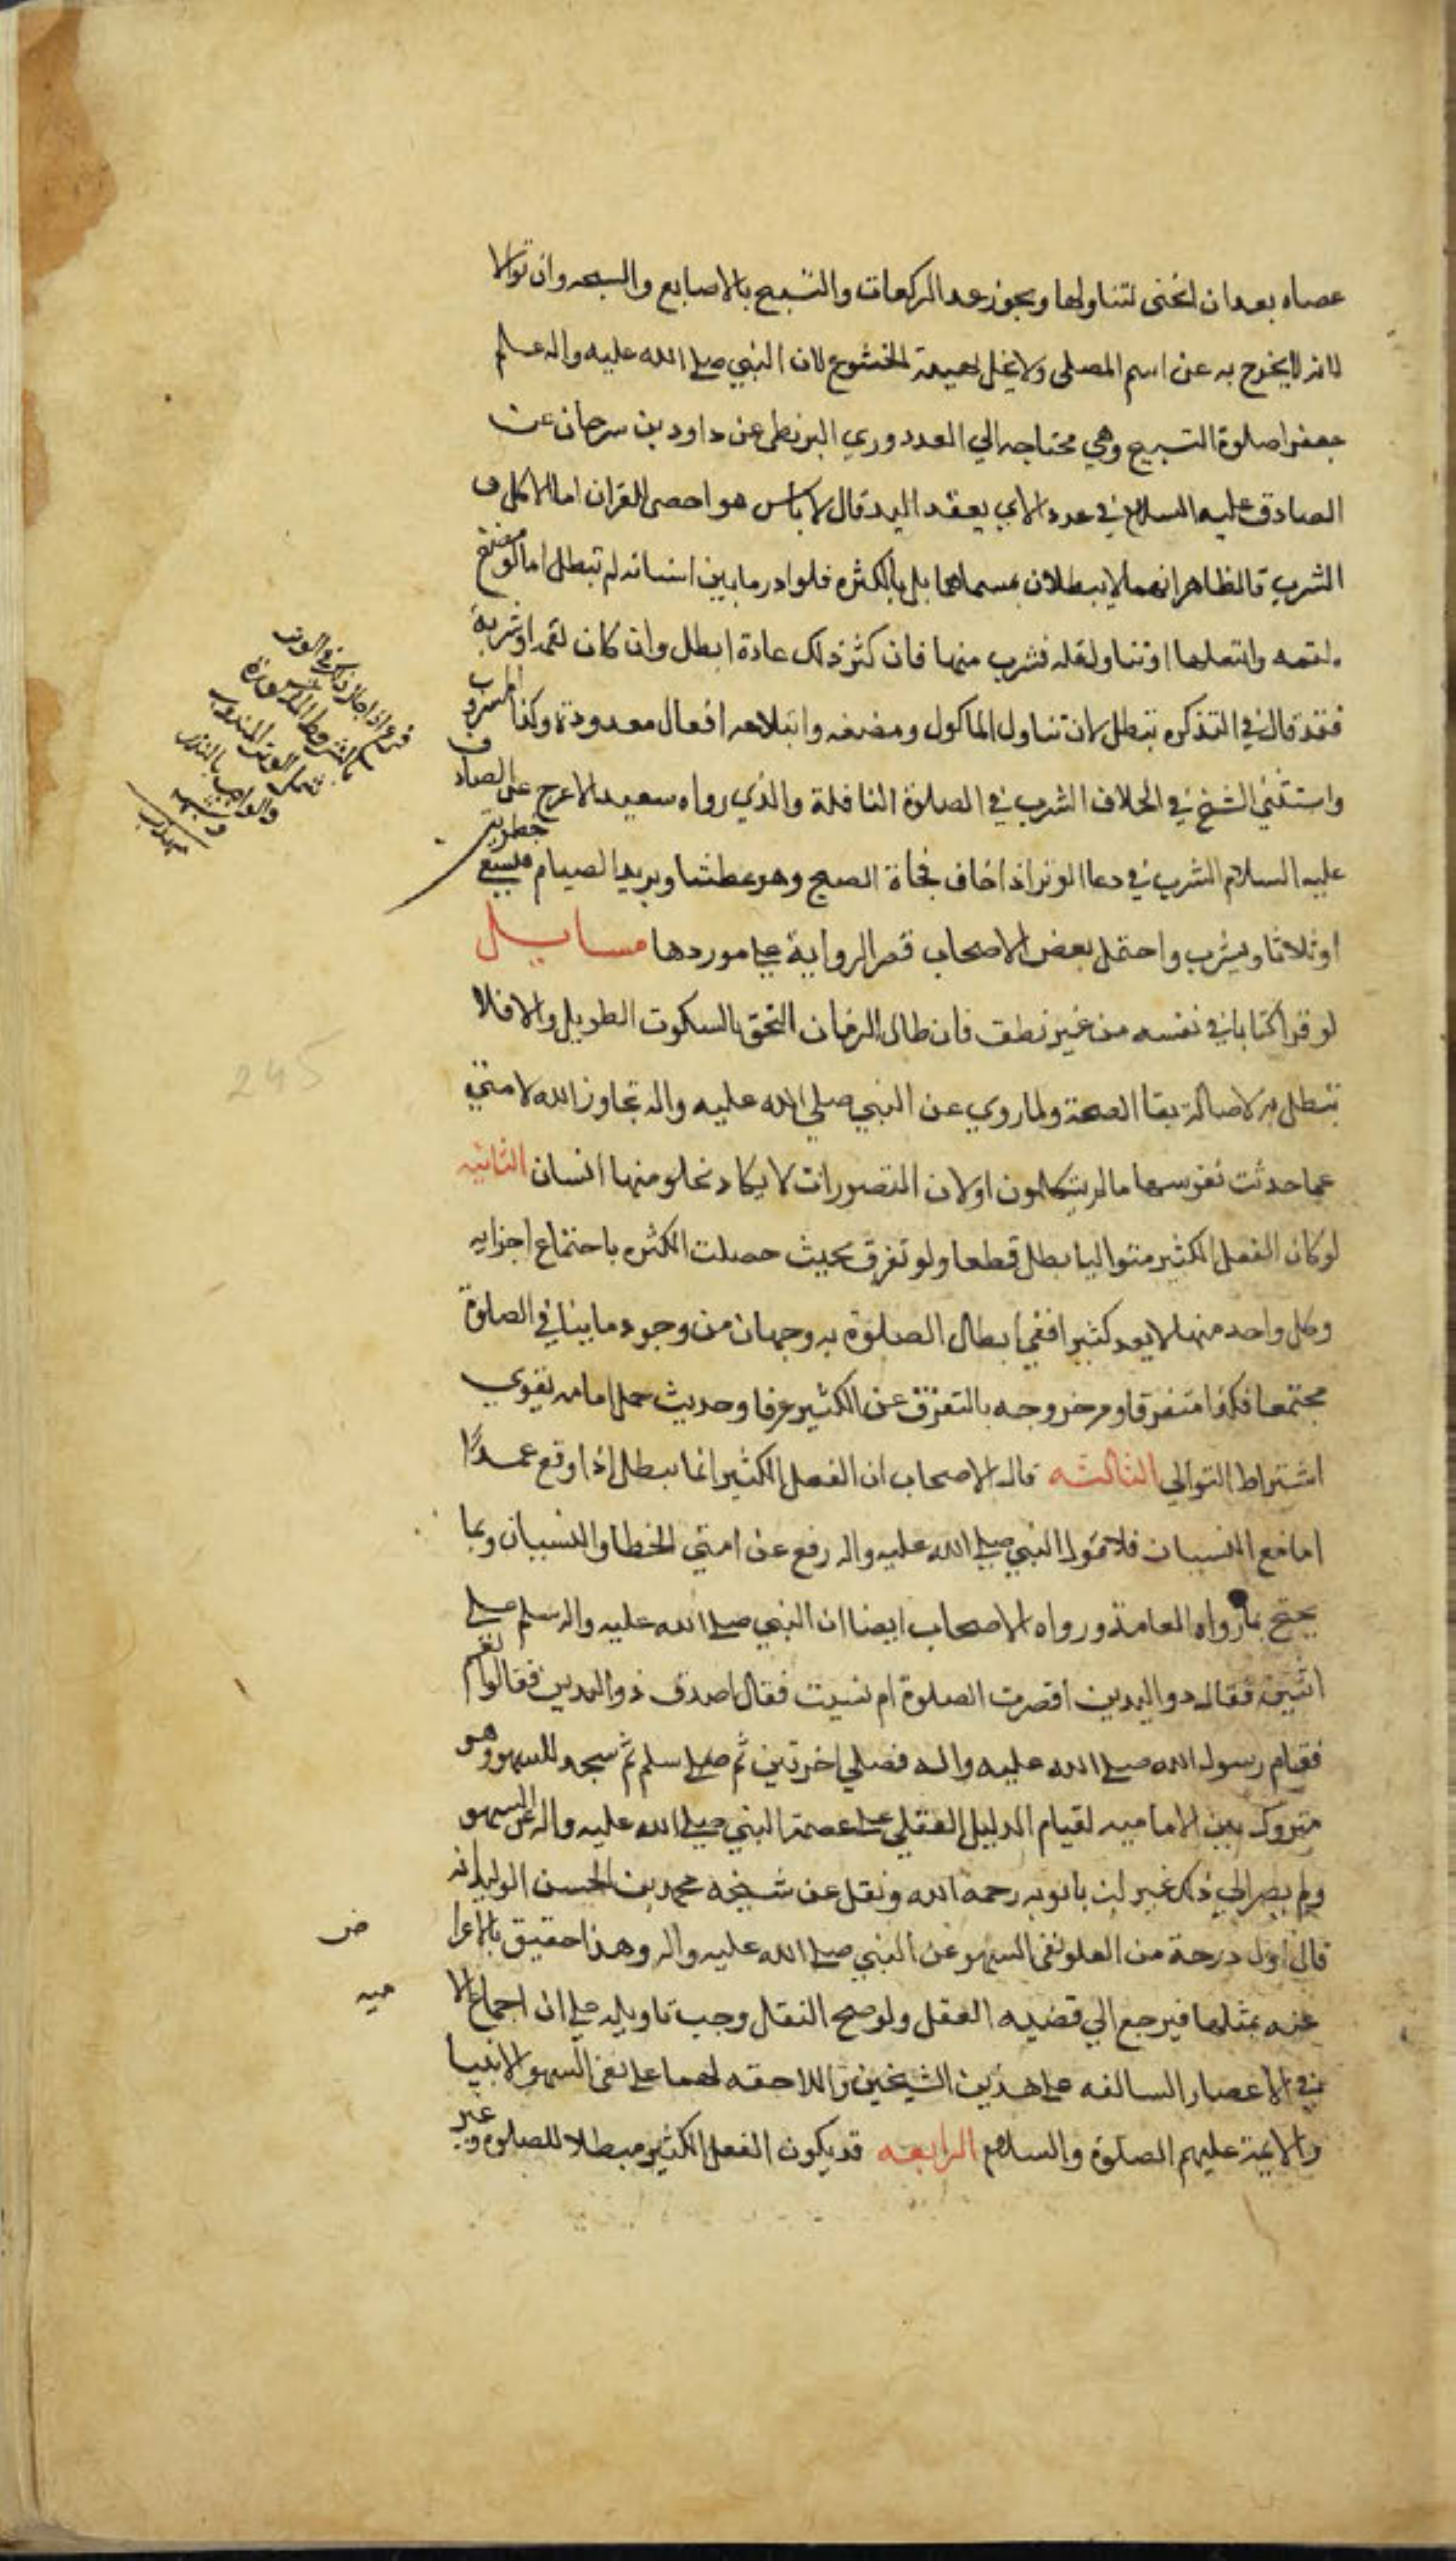 عصاه بعد ان انحنى لتناولها ويجوز عد الركعات والتسبيح بالاصابع والسبحه وان توالا
لانه لا يخرج به عن اسم المصلى ولا يخل بهيئة الخشوع لان النبي صلى الله عليه واله علم
جعفرا صلوة التسبيح وهي محتاجه الي العدد وروي البزنطى عن داود بن سرحان عن
الصادق عليه السلام في عدد الاي بعقد اليد قال لا باس هو احصى للقران اما الاكل و
الشرب فالظاهر انهما لا يبطلان بمسماهما بل بالكثره فلو ادرد ما بين اسنانه لم تبطل اما لو مضغ
لقمه وابتعلها او تناول قله فشرب منها فان كثر ذلك عادة ابطل وان كان لقمه او شربة
فقد قال في التذكره تبطل لان تناول الماكول ومضغه وابتلاعه افعال معدودة وكذا المشروب
واستثنى الشيخ في الخلاف الشرب في الصلوة النافلة والذي رواه سعيد الاعرج عن الصادق
عليه السلام الشرب في دعا الوتر اذا خاف فجاة الصبح وهو عطشا ويريد الصيام فليسع خطوتين
او ثلاثا ويشرب واحتمل بعض الاصحاب قصر الرواية على موردها مسايل
لو قرا كتابا في نفسه من غير نطق فان طال الزمان التحق بالسكوت الطويل والا فلا
تبطل به لاصالة بقا الصحة ولما روي عن النبي صلي الله عليه واله تجاوز الله لامتي
عما حدثت نفوسها ما لم يتكلمون او لان التصورات لا يكاد نخلو منها انسان الثانيه
لو كان الفعل الكثير متواليا بطل قطعا ولو تفرق بحيث حصلت الكثره باجتماع اجزايه
وكل واحد منها لا يعد كثيرا ففي ابطال الصلوة به وجهان من وجود ما ينافي الصلوة
مجتمعا فكذا متفرقا ومن خروجه بالتفرق عن الكثير عرفا وحديث حمل امامه يقوي
اشتراط التوالى الثالثه قال الاصحاب ان الفعل الكثير انما يبطل اذا وقع عمدًا
اما مع النسيان فلا لقول النبي صلى الله عليه واله رفع عن امتي الخطا والنسيان وبما
يحتج بما رواه العامة ورواه الاصحاب ايضا ان النبي صلى الله عليه واله سلم على
اثنتين فقال ذو اليدين اقصرت الصلوة ام نسيت فقال اصدق ذو اليدين فقالوا نعم
فقام رسول الله صلى الله عليه واله فصلي اخرتين ثم سلم ثم سجد للسهو وهو
متروك بين الاماميه لقيام الدليل العقلي على عصمة النبي صلى الله عليه واله عن السهو
ولم يصر الي ذلك غير ابن بابويه رحمه الله ونقل عن شيخه محمد بن الحسن الوليد انه
قال اول درجة من العلو نفى السهو عن النبي صلى الله عليه واله وهذا حقيق بالاعرا
ض
عنه بمثلها فيرجع الي قضيه العقل ولو صح النقل وجب تاويله على ان اجماع الا
ميه
في الاعصار السالفه على هذين الشيخين واللاحقه لهما على نفى السهو الانبيا
والايمة عليهم الصلوة والسلام الرابعه قد يكون الفعل الكثير مبطلا للصلوة وغير
شمل الوتر المندوب
والواجب بالنذر
وشبهه
245